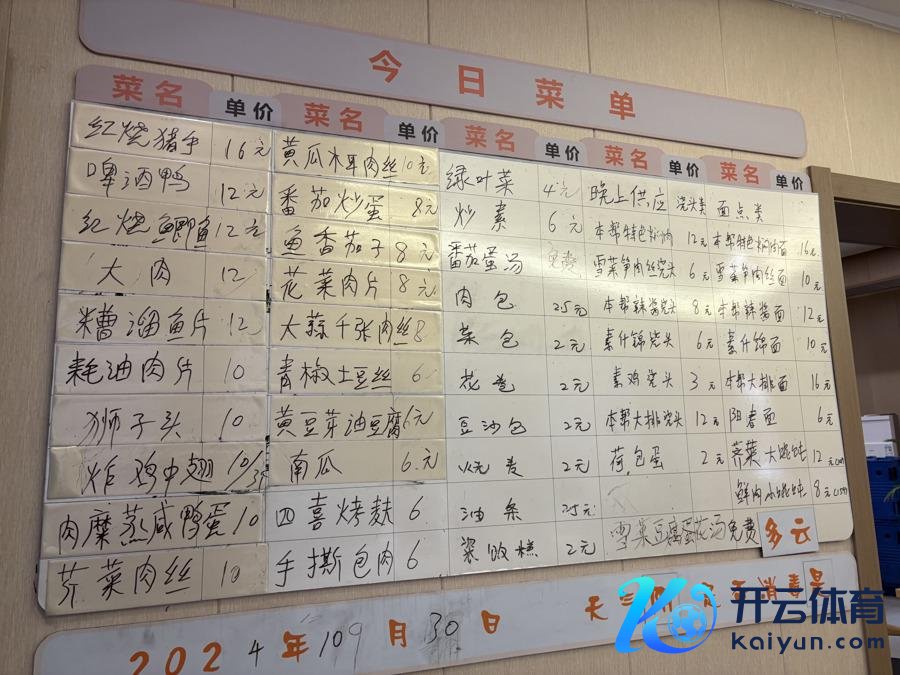 今日菜单
菜名 单价 菜名 单价 菜名 单价 菜名 单价 菜名 单价
红烧猪手 16元
啤酒鸭 12元
红烧鲫鱼 12元
大肉 12
糟溜鱼片 12
耗油肉片 10
狮子头 10
炸鸡中翅 10/3只
肉糜蒸咸鸭蛋 10
芥菜肉丝 10
黄瓜木耳肉丝 10元
番茄炒蛋 8元
鱼香茄子 8元
花菜肉片 8元
大蒜千张肉丝 8
青椒土豆丝 6
黄豆芽油豆腐 6元
南瓜 6.元
四喜烤麸 6
手撕包肉 6
绿叶菜 4元
炒素 6元
番茄蛋汤 免费
肉包 2.5元
菜包 2元
花卷 2元
豆沙包 2元
2元
油条 2.5元
2元
晚上供应 浇头类
本帮特色 12元
雪菜笋肉丝浇头 6元
本帮辣酱浇头 8元
素什锦浇头 6元
素鸡浇头 3元
本帮大排浇头 12元
荷包蛋 2元
雪菜豆腐蛋花汤免费
面点类
本帮特色 面 16元
雪菜笋肉丝面 10元
本帮辣酱面 12元
素什锦面 10元
本帮大排面 16元
阳春面 6元
荠菜大馄饨 12元
鲜肉小馄饨 8元
多云
2024年109月30日
天
消毒
开云体育
Kaiyun.com